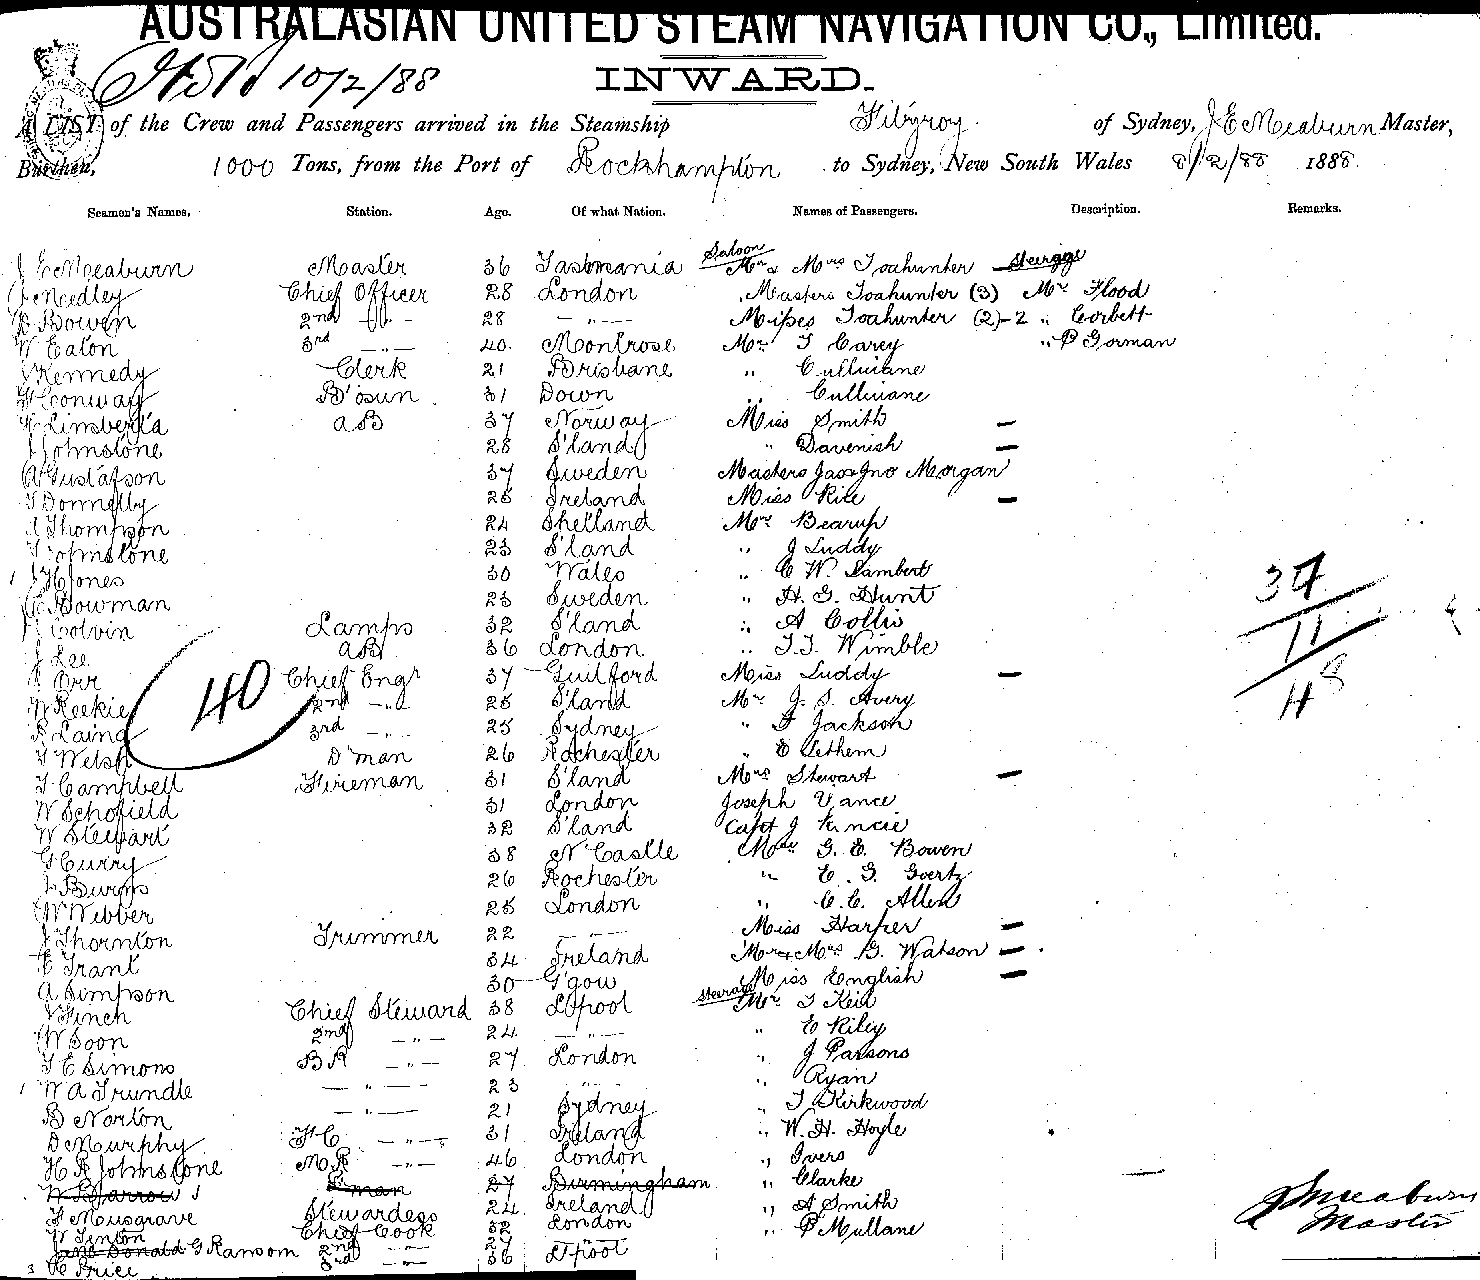 AUSTRALASIAN UNITED STEAM NAVIGATION CO., Limited.
10/2/88 INWARD.
A LIST of the Crew and Passengers arrived in the Steamship Fitzroy of Sydney, J E Meaburn Master,
Burthen, 1000 Tons, from the Port of Rockhampton to Sydney, New South Wales 8/2/88 1888.
Seamen's Names. Station. Age. Of what Nation. Names of Passengers. Description. Remarks.
J E Meaburn Master 36 Tasmania Saloon Mr & Mrs Toahunter Steerage
J Medley Chief Officer 28 London Masters Toahunter (3) Mr Flood
Bowen 2nd -"- 28 -"- Misses Toahunter (2)-2 " Corbett
W Eaton 3rd -"- 40 Montrose Mr T Carey " P Gorman
J Kennedy Clerk 21 Brisbane " Cullinane
Conway B'osun 31 Down " Cullinane
AB 37 Norway Miss Smith
J Johnstone 28 S'land " Davenish
A Gustafson 37 Sweden Masters Jas & Jno Morgan
T Donnelly 25 Ireland Miss Rice
Thompson 24 Shetland Mr Bearup
T Johnstone 23 S'land " J Luddy
J H Jones 30 Wales " C W Lambert
Bowman 23 Sweden " H. G. Hunt
Colvin Lamps 32 S'land " A Collis
J Lee AB 36 London " T. T. Wimble
J Orr Chief Engr 37 Guilford Miss Luddy
W Reekie 2nd -"- 25 S'land Mr J. S. Avery
R Laing 3rd -"- 25 Sydney " F Jackson
T Welsh D'man 26 Rochester " E Lethem
T Campbell Fireman 31 S'land Mrs Stewart
W Schofield 31 London Joseph Vance
W Stewart 32 S'land Capt J
G Curry 38 N'Castle Mr G. E. Bowen
J Burns 26 Rochester " E. G. Goertz
W Webber 25 London " C. C. Allen
J Thornton Trimmer 22 -"- Miss Harper
E Trant 34 Ireland Mr & Mrs G. Watson
A Simpson 30 G'gow Miss English
J Finch Chief Steward 38 L'pool Steerage Mr T Reid
W Soon 2nd -"- 24 -"- " E Riley
T E Simons BR -"- 27 London " J Parsons
W A Trundle -"- 23 " " Ryan
B Norton -"- 21 Sydney " T Kirkwood
D Murphy FC -"- 31 Ireland " W. H. Hoyle
H R Johnstone MR -"- 46 London " Ivers
W Darrow F'man 27 Birmingham " Clarke
F Musgrave Stewardess 24 Ireland " A Smith
W Tinton Chief Cook 32 London " P Mullane
Jane Donald G Ransom 2nd -"- 27
Price 3rd -"- 36 L'pool
40
37
11
48
J E Meaburn
Master